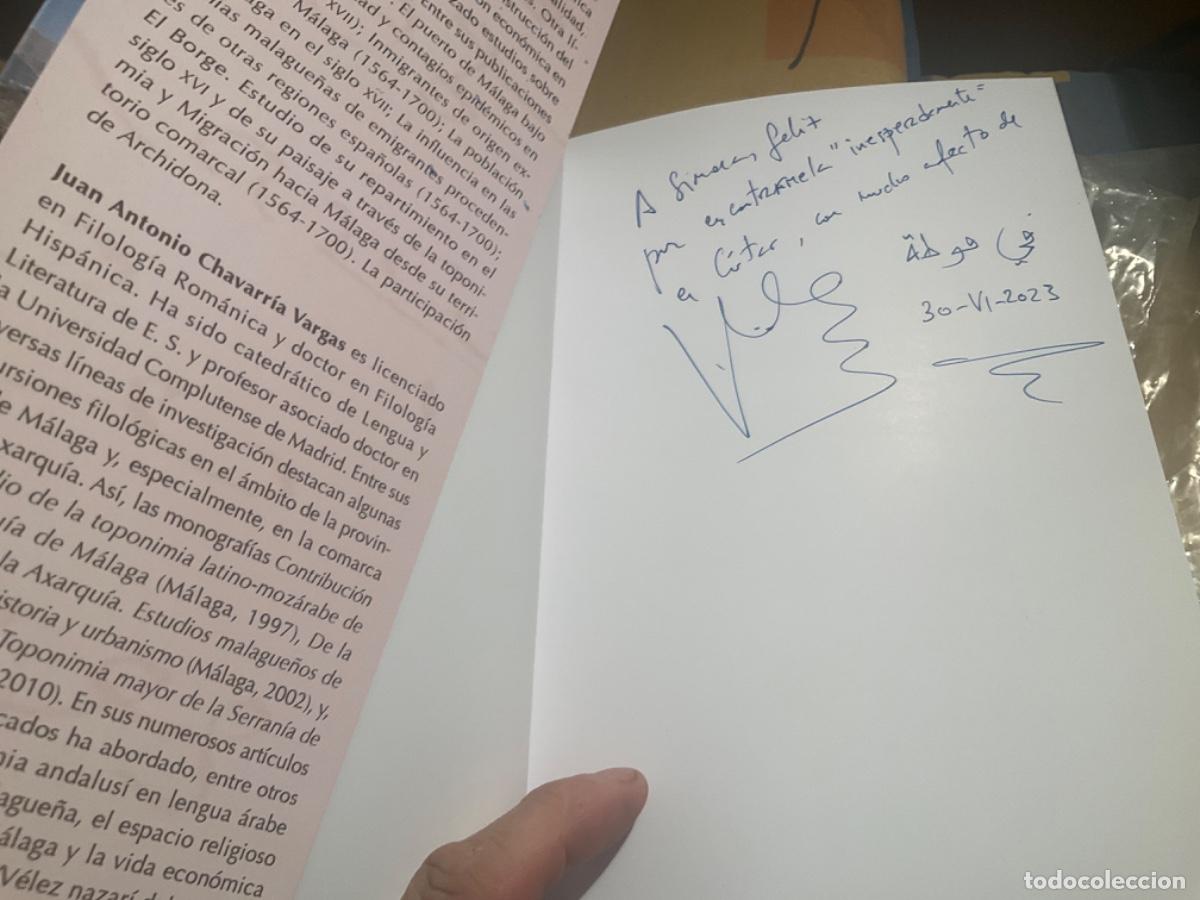 nica
alidad,
s. Otra lí-
strucción del
ón económica en
zado estudios sobre
entre sus publicaciones
. El puerto de Málaga bajo
ad y contagios epidémicos en
XVII); Inmigrantes de origen ex-
Málaga (1564-1700); La población
aga en el siglo XVII; La influencia en las
nias malagueñas de emigrantes proceden-
es de otras regiones españolas (1564-1700);
El Borge. Estudio de su repartimiento en el
siglo XVI y de su paisaje a través de la toponi-
mia y Migración hacia Málaga desde su terri-
torio comarcal (1564-1700). La participación
de Archidona.
Juan Antonio Chavarría Vargas es licenciado
en Filología Románica y doctor en Filología
Hispánica. Ha sido catedrático de Lengua y
Literatura de E. S. y profesor asociado doctor en
a Universidad Complutense de Madrid. Entre sus
versas líneas de investigación destacan algunas
ursiones filológicas en el ámbito de la provin-
e Málaga y, especialmente, en la comarca
xarquía. Así, las monografías Contribución
dio de la toponimia latino-mozárabe de
uía de Málaga (Málaga, 1997), De la
la Axarquía. Estudios malagueños de
istoria y urbanismo (Málaga, 2002), y,
Toponimia mayor de la Serranía de
2010). En sus numerosos artículos
cados ha abordado, entre otros
nia andalusí en lengua árabe
agueña, el espacio religioso
álaga y la vida económica
Vélez nazarí
A feliz
por encontrarnela "inesperadamente"
en , con mucho afecto de
30-VI-2023
todocoleccion